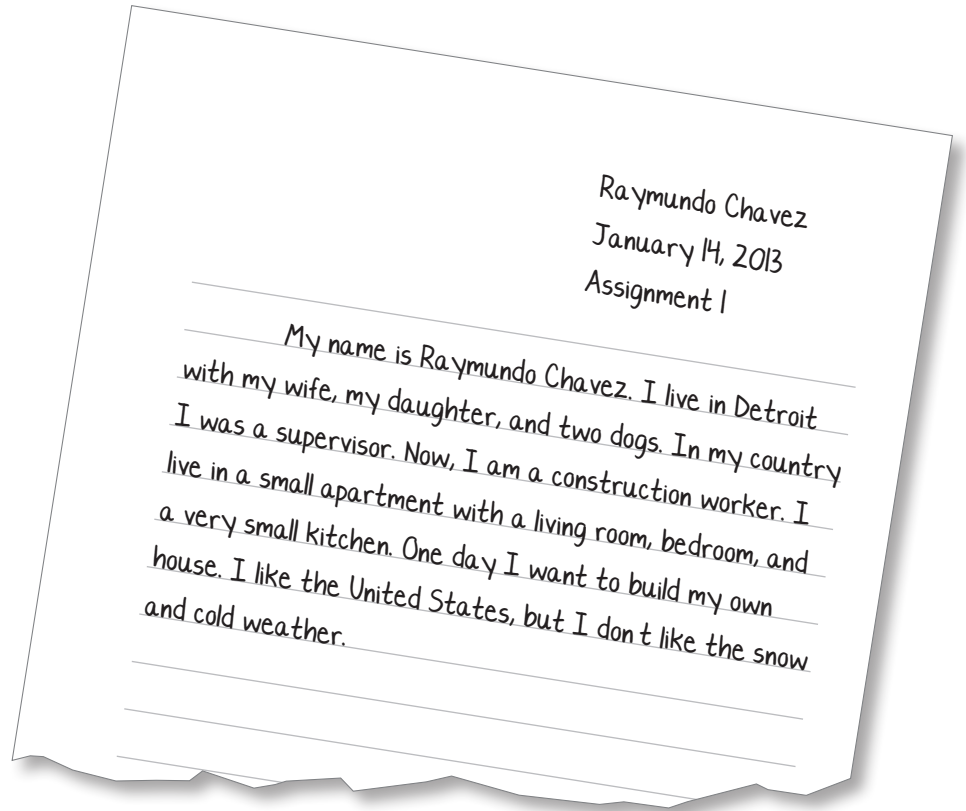 Raymundo Chavez
January 14, 2013
Assignment 1
My name is Raymundo Chavez. I live in Detroit
with my wife, my daughter, and two dogs. In my country
I was a supervisor. Now, I am a construction worker. I
live in a small apartment with a living room, bedroom, and
a very small kitchen. One day I want to build my own
house. I like the United States, but I don t like the snow
and cold weather.